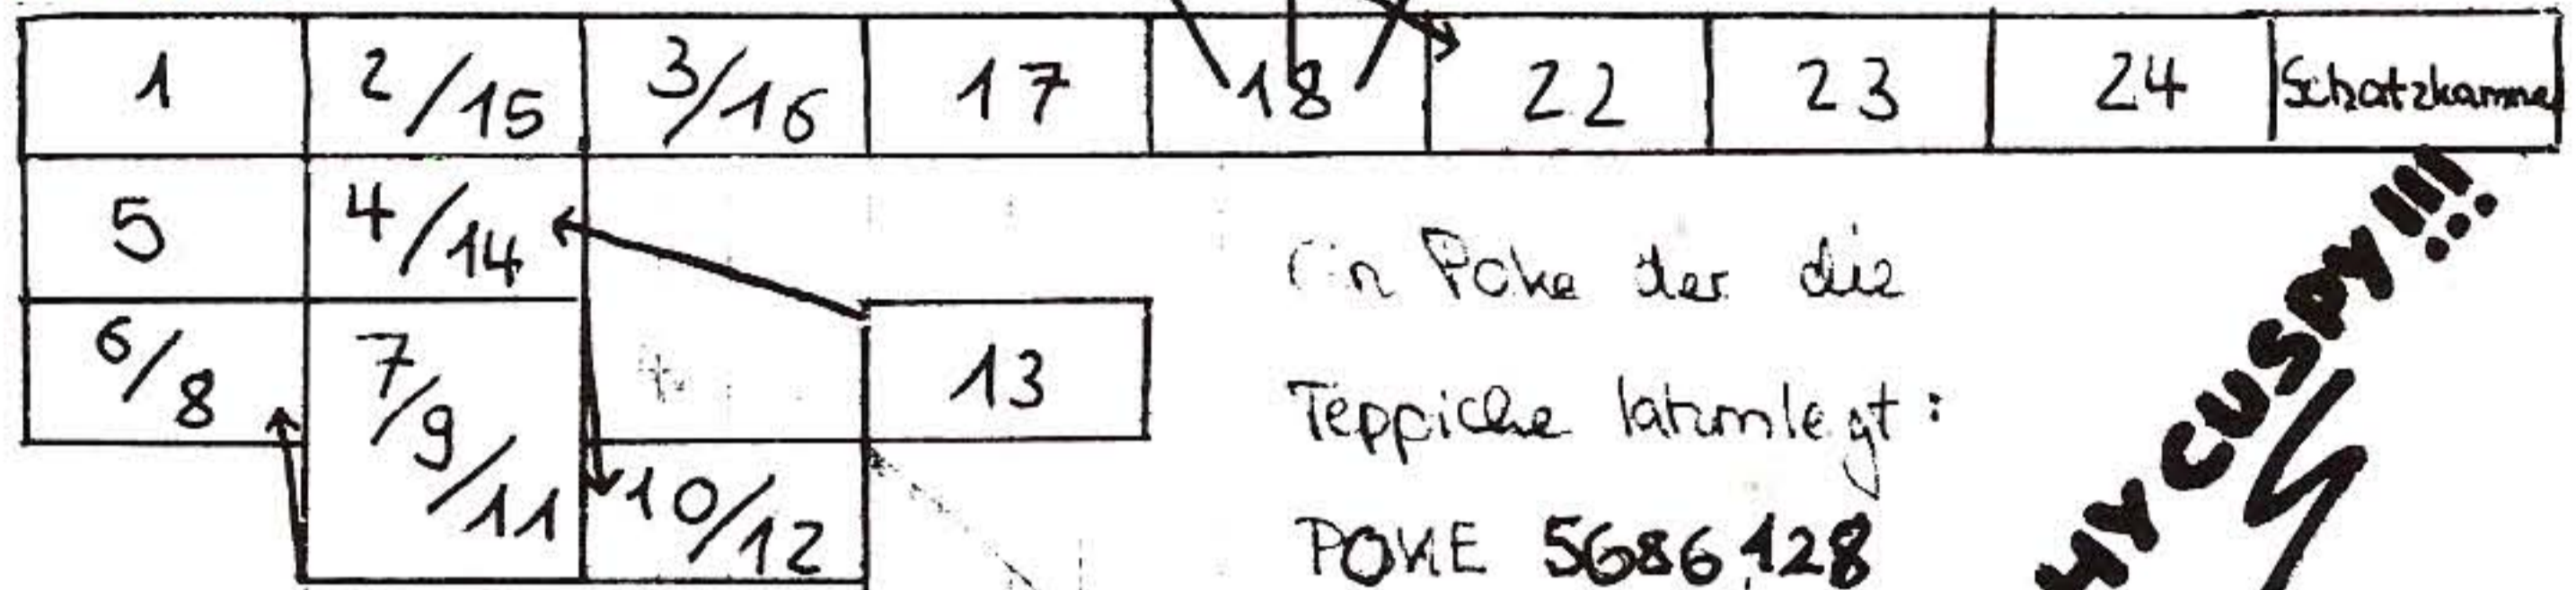 1 2/15 3/16 17 18 22 23 24 Schatzkammer
5 4/14
6/8 7/9/11 13
10/12
Ein Poke der die
Teppiche lahmlegt:
POKE 5686,128